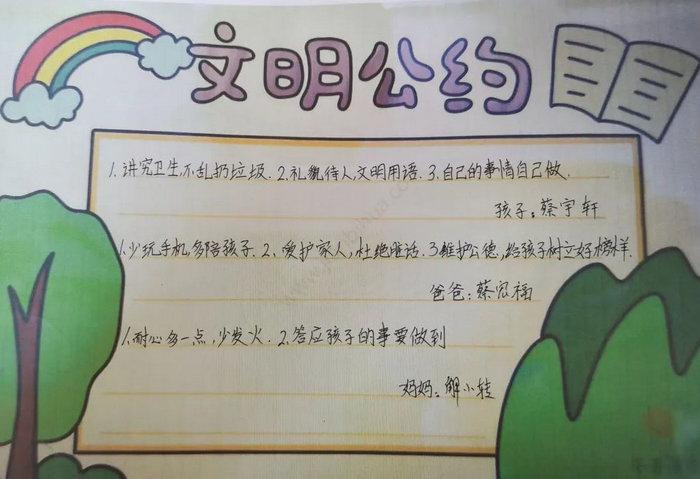 文明公约
1. 讲究卫生,不乱扔垃圾. 2. 礼貌待人,文明用语. 3. 自己的事情自己做.
孩子:蔡宇轩
1. 少玩手机,多陪孩子. 2、爱护家人,杜绝脏话. 3维护公德,给孩子树立好榜样.
爸爸:蔡福
1. 耐心多一点,少发火. 2. 答应孩子的事要做到
妈妈:解小转